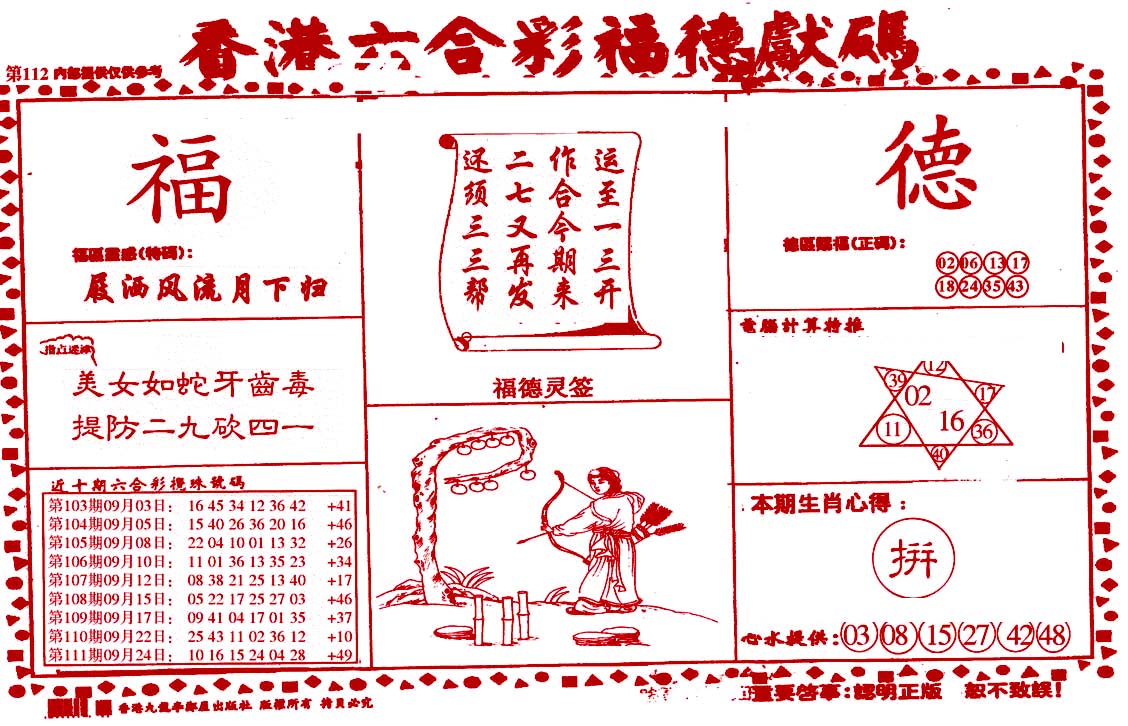 香港六合彩福德獻碼
第112 内部提供仅供参考
福
福區靈感(特碼):
屐洒风流月下归
指点迷津
美女如蛇牙齒毒
提防二九砍四一
近十期六合彩攪珠號碼
第103期09月03日: 16 45 34 12 36 42 +41
第104期09月05日: 15 40 26 36 20 16 +46
第105期09月08日: 22 04 10 01 13 32 +26
第106期09月10日: 11 01 36 13 35 23 +34
第107期09月12日: 08 38 21 25 13 40 +17
第108期09月15日: 05 22 17 25 27 03 +46
第109期09月17日: 09 41 04 17 01 35 +37
第110期09月22日: 25 43 11 02 36 12 +10
第111期09月24日: 10 16 15 24 04 28 +49
运至一三开
作合今期来
二七又再发
还须三三帮
福德灵签
德
德區賜福(正碼):
02 06 13 17
18 24 35 43
電腦計算特推
12
39 02 17
11 16 36
40
本期生肖心得:
拼
心水提供:03 08 15 27 42 48
香港九龍 出版社 版權所有 拷貝必究
重要啓事:認明正版 恕不致誤!